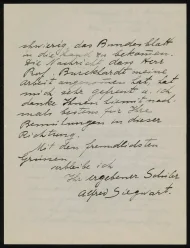 schwierig, das Bundesblatt
in die Hand zu bekommen.
Die Nachricht, dass Herr
Prof. Burckhardt meine
Arbeit angenommen hat, hat
mich sehr gefreut u. ich
danke Ihnen hiemit noch-
mals bestens für Ihre
Bemühungen in dieser
Richtung.
Mit den freundlichsten
Grüssen
verbleibe ich
Ihr ergebener Schüler
Alfred Siegwart.